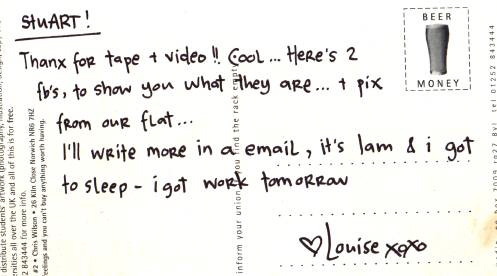 StuART!
BEER
MONEY
Thanx for tape + video!! Cool... Here's 2
fb's, to show you what they are... + pix
from our flat...
I'll write more in a email, it's 1am & i got
to sleep - i got work tomorrow
♡Louise xoxo
distribute students' artwork (photography, illustration, design,
rsities all over the UK and all of this is for free.
2 843444 for more info.
#2 • Chris Wilson • 26 Kiln Close Norwich NR6 7HZ
eelings and you can't buy anything worth having.
inform your union
you find the rack empt
tel 01252 843444